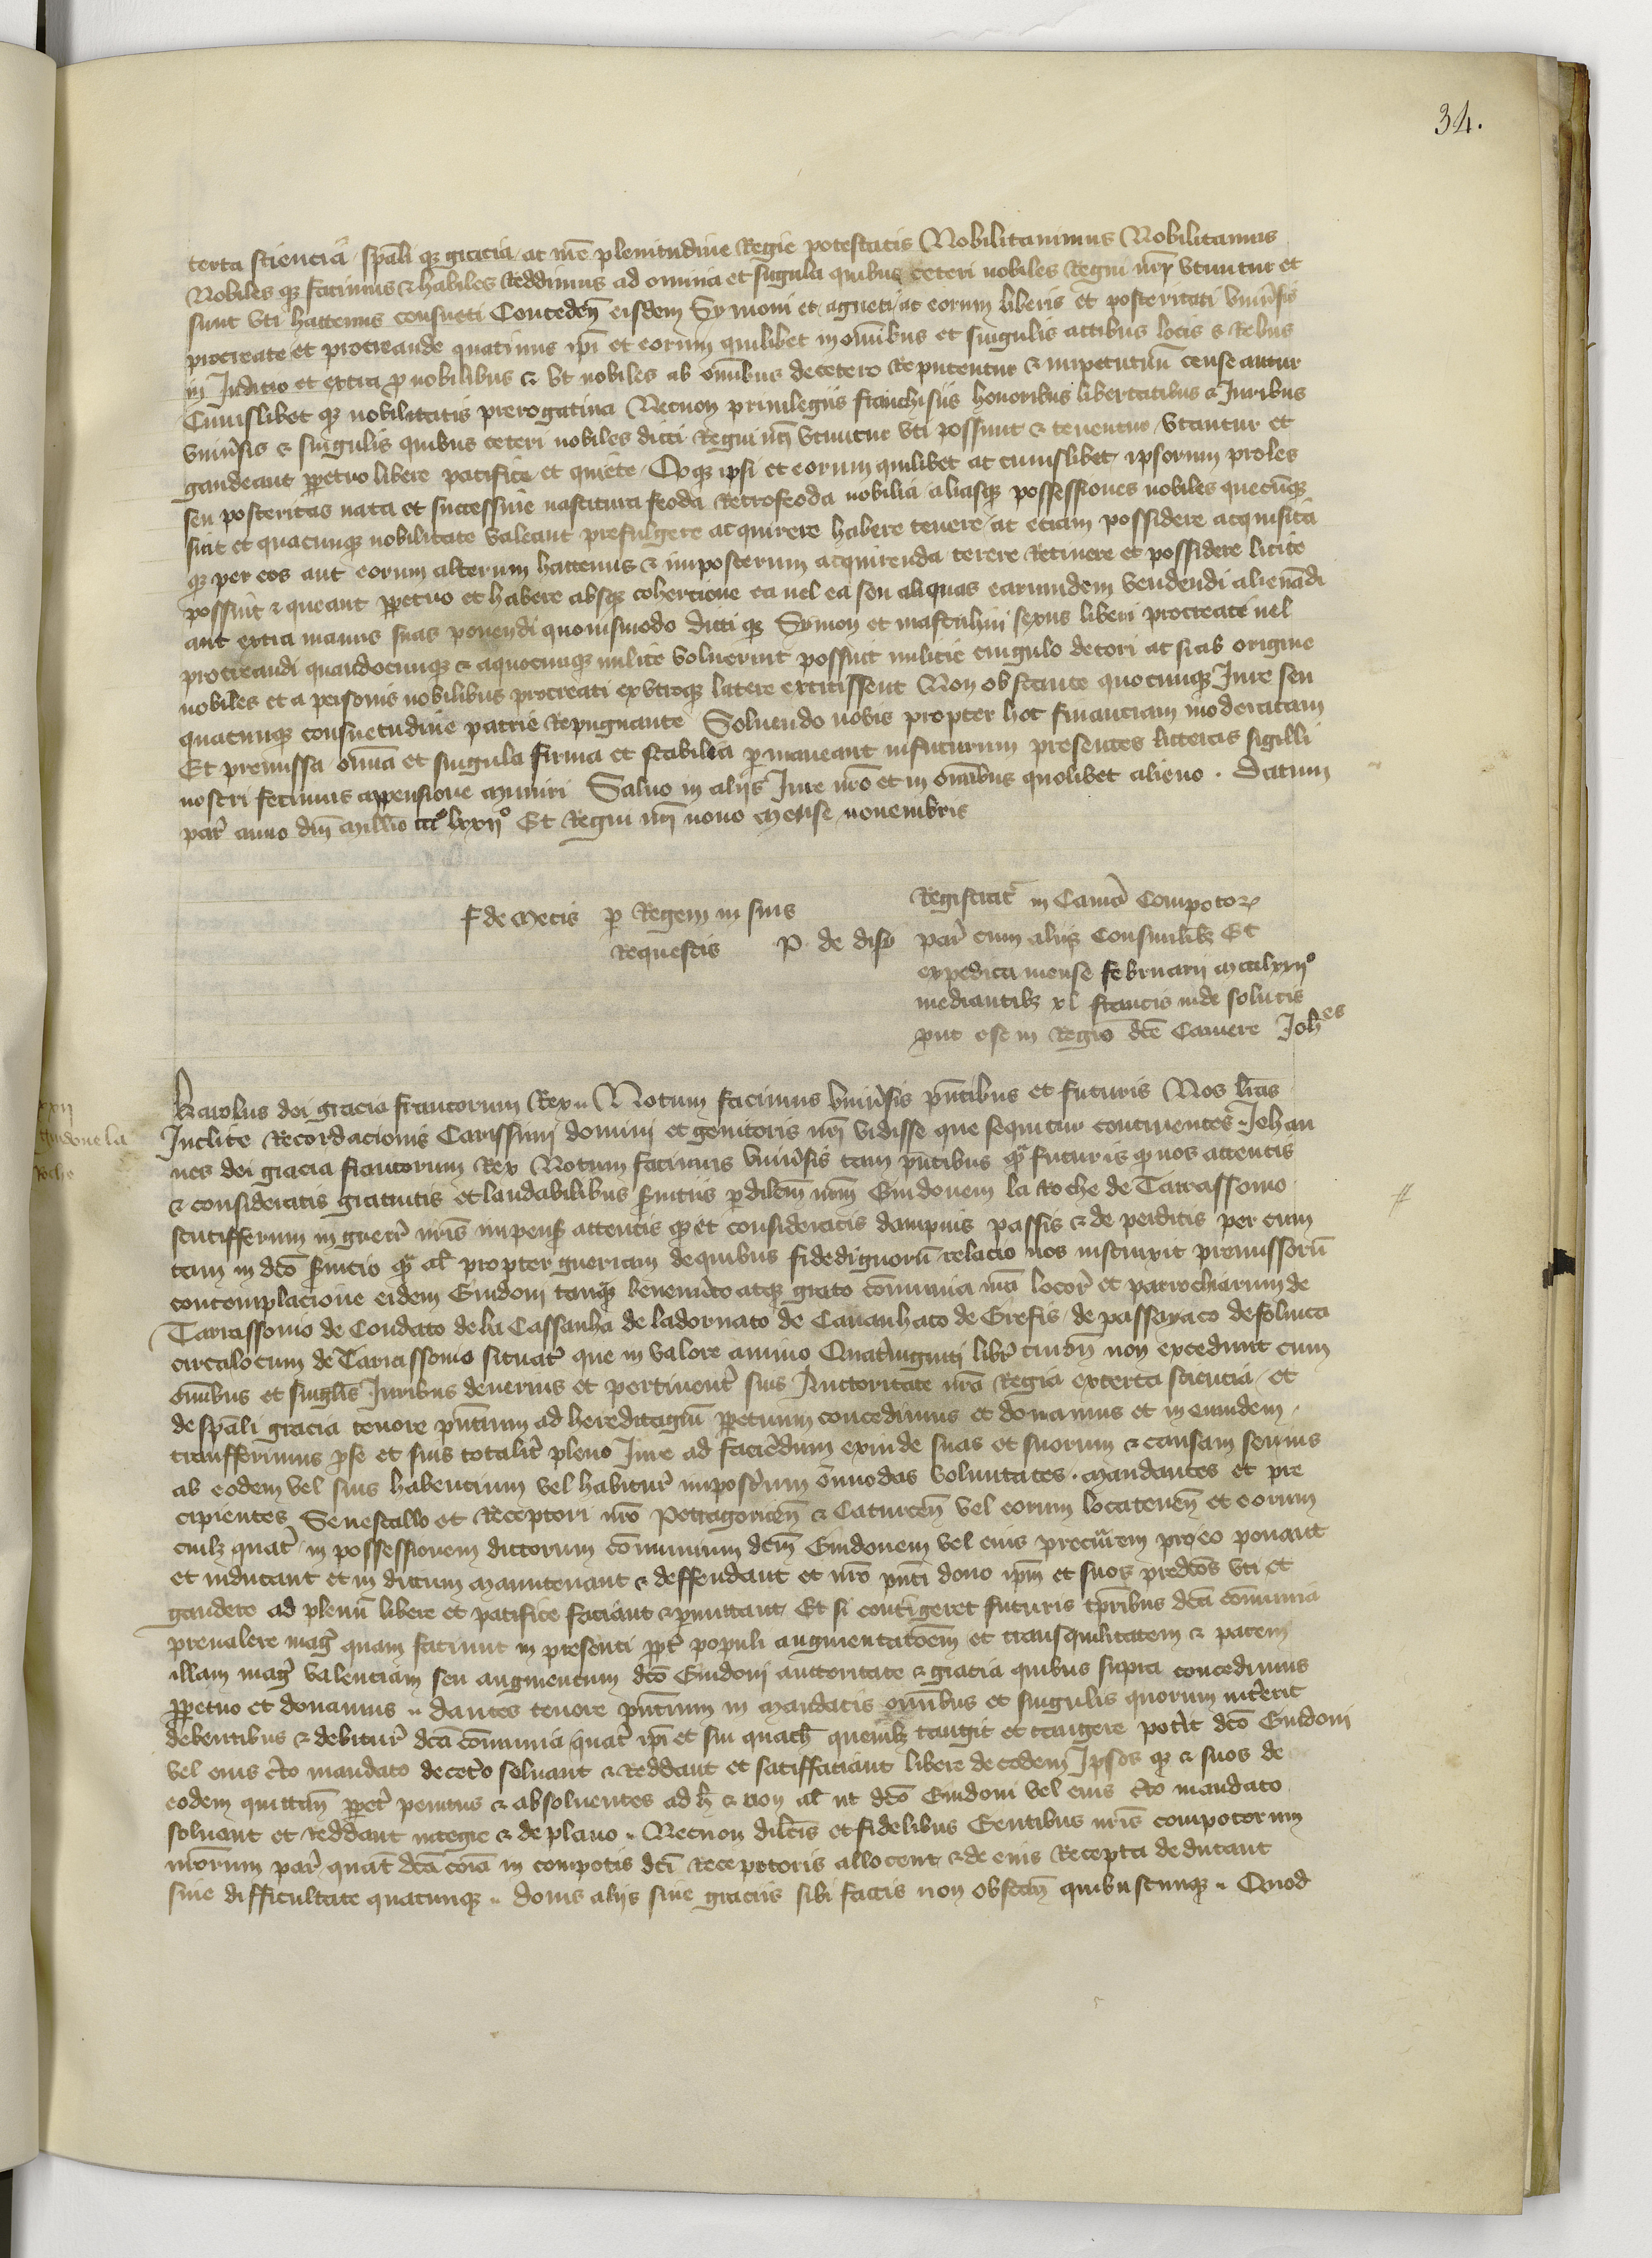 34.
certa sciencia sp̄ali qz gracia ac nr̄e plenitudine Regie potestatis Nobilitauimus Nobilitamus
Nobiles qz facimus & habiles Reddimus ad omnia et singula quibus ceteri nobiles Regni nr̄i vtuntur et
sunt vti hactenus consueti Conceden̄ eisdem Symoni et agneti ac eorum liberis et posteritati vniu̾sis
procreate et procreande quatinus ip̄i et eorum quilibet in om̄ibus et singulis actibus locis & Rebus
in Judicio et extra p̱ nobilibus & vt nobiles ab om̄ibus decetero Reputentur & inperpetuū censeantur
Cuiuslibet qz nobilitatis prerogatiua Necnon priuilegiis franchisiis honoribus libertatibus & Juribus
vniu̾sis & singulis quibus ceteri nobiles dicti Regni nr̄i vtuntur vti possunt & tenentur vtantur et
gaudeant p̱petuo libere pacifice et quiete Et qz ipsi et eorum quilibet ac cuiuslibet ipsorum proles
seu posteritas nata et successiue nascitura feoda Retrofeoda nobilia aliasqz possessiones nobiles quecūqz
sint et quacunqz nobilitate valeant prefulgere acquirere habere tenere ac etiam possidere acquisita
qz per eos aut eorum alterum hactenus & imposterum acquirenda tenere Retinere et possidere licite
possint & queant p̱petuo et habere absqz cohercione ea uel ea seu aliquas earumdem vendendi alienādi
aut extra manus suas ponendi quouismodo dicti qz Symon et masculini sexus liberi procreati uel
procreandi quandocunqz & aquocunqz milite voluerint possint milicie cingulo decori ac si ab origine
nobiles et a personis nobilibus procreati ex vtroqz latere extitissent Non obstante quocunqz Jure seu
quacunqz consuetudine patrie Repugnante Soluendo nobis propter hoc financiam moderatam
Et premissa om̄ia et singula firma et stabilia p̱maneant infuturum presentes litteras sigilli
nostri fecimus appensione muniri Saluo in aliis Jure nr̄o et in om̄ibus quolibet alieno . Datum
par̾ anno dn̄i millio ccco lxxiio Et Regni nr̄i nono mense nouembris
F de mecis p̱ Regem in suis
Requestis P. de disy
Registrat̾ in Cam̄a Compotor̾
par̾ cum aliis Consimilibz Et
expedita mense februarii ccclxxiio
mediantibz xl francis inde solutis
p̱ut est in Regr̄o dc̄e Camere Johes
xxii
Guidone la
Roche
Karolus dei gracia francorum Rex Notum facimus vniu̾sis pn̄tibus et futuris Nos lr̄as
Inclite Recordacionis Carissimi domini et genitoris nr̄i vidisse que sequitur continentes Johan
nes dei gracia francorum Rex Notum facimus vniu̾sis tam pn̄tibus qz̄ futuris q̱ nos attentis
& consideratis gratuitis et laudabilibus s̾uiciis p̱ dilc̄m nr̄m Guidonem la Roche de Tarrassonio
scutifferum in guerr̾ nr̄is inpens̾ attentis qz et consideratis dampnis passis & de perditis per eum
tam in dc̄o s̾uicio qz̄ al̄ propter guerram de quibus fidedignorū relacio nos instruxit premissorū
contemplacione eidem Guidoni tanqz̄ benem̾ito atqz grato com̄unia nr̄a locor̾ et parrochiarum de
Tarrassonio de Condato de la Cassanha de ladornaco de Cauanhaco de Grefis de passayaco de soluca
circa locum de Tarrassonio situat̾ que in valore annuo Quat̾uiginti libr̾ turon̄ non excedunt cum
om̄ibus et sing̾lis Juribus deueriis et pertinent̾ suis Auctoritate nr̄a Regia ex certa sciencia et
de sp̄ali gracia tenore pn̄tium ad hereditagiū p̱petuum concedimus et donamus et in eumdem
transferimus p̱ se et suis totalit̾ pleno Jure ad faciēdum exinde suas et suorum & causam seu ius
ab eodem vel suis habentium vel habitur̾ impost̾um om̄imodas voluntates . Mandantes et pre
cipientes Senescallo et Receptori nr̄o Petragoricen̄ & Caturcen̄ vel eorum locatenen̄ et eorum
cuilz quat̾ in possessionem dictorum com̄unium dc̄m Guidonem vel eius procur̄em pro eo ponant
et inducant et in dictum manuteneant & deffendant et nr̄o pn̄ti dono ip̄m et suos predc̄os vti et
gaudere ad plenū libere et pacifice faciant & p̱mittant Et si contigeret futuris tp̱ribus dc̄a com̄unia
preualere mag̾ quam faciunt in presenti p̱pt̾ populi augmentatōem et transquilitatem & pacem
illam mag̾ valenciam seu augmentum dc̄o Guidoni auctoritate & gracia quibus supra concedimus
p̱petuo et donamus dantes tenore pn̄tium in mandatis om̄ibus et singulis quorum int̾erit
debentibus & debitur̾ dc̄a com̄unia quat̾ ip̄i et sui quath̄ quemlz tangit et tangere pot̾it dc̄o Guidoni
vel eius c̾to mandato decet̾o soluant & Reddant et satisfaciant libere de eodem Ipsos qz & suos de
eodem quittan̄ p̱pet̾ penitus & absoluentes ad h̄ & non al̄ ut dc̄o Guidoni vel eius c̾to mandato
soluant et reddant integre & de plano Necnon dilc̄is et fidelibus Gentibus nr̄is compotorum
nr̄orum par̾ quat̾ dc̄a cōia in compotis dc̄i Receptoris allocent & de eius Recepta deducant
sine difficultate quacunqz donis aliis siue graciis sibi factis non obstan̄ quibuscunqz Quod